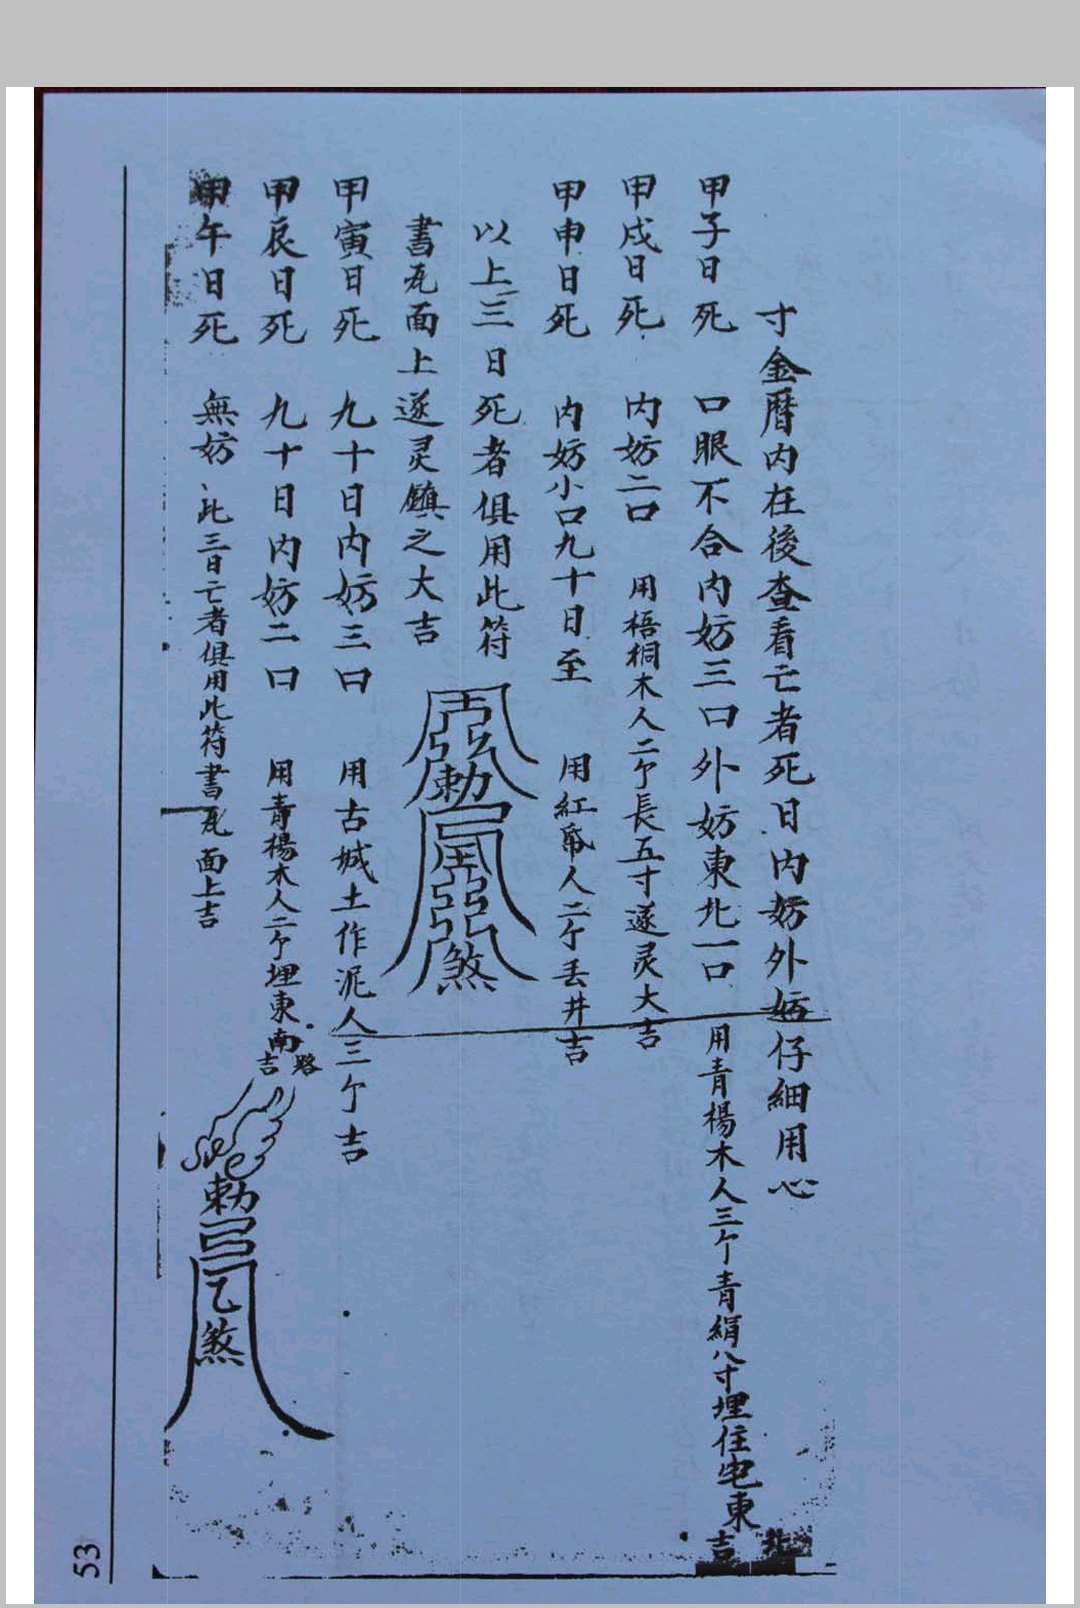 寸金曆内在後查看亡者死日内妨外妨仔細用心
甲子日死 口眼不合内妨三口外妨東北一口 用青楊木人三个青絹八寸埋住宅東北吉
甲戌日死 内妨二口 用梧桐木人二个長五寸遂灵大吉
甲申日死 内妨小口九十日至 用紅帋人二个丢井吉
以上三日死者俱用此符
書瓦面上遂灵鎮之大吉
勅
煞
甲寅日死 九十日内妨三口 用古城土作泥人三个吉
甲辰日死 九十日内妨二口 用青楊木人二个埋東南路吉
甲午日死 無妨 此三日亡者俱用此符書瓦面上吉
勅
乙煞
53